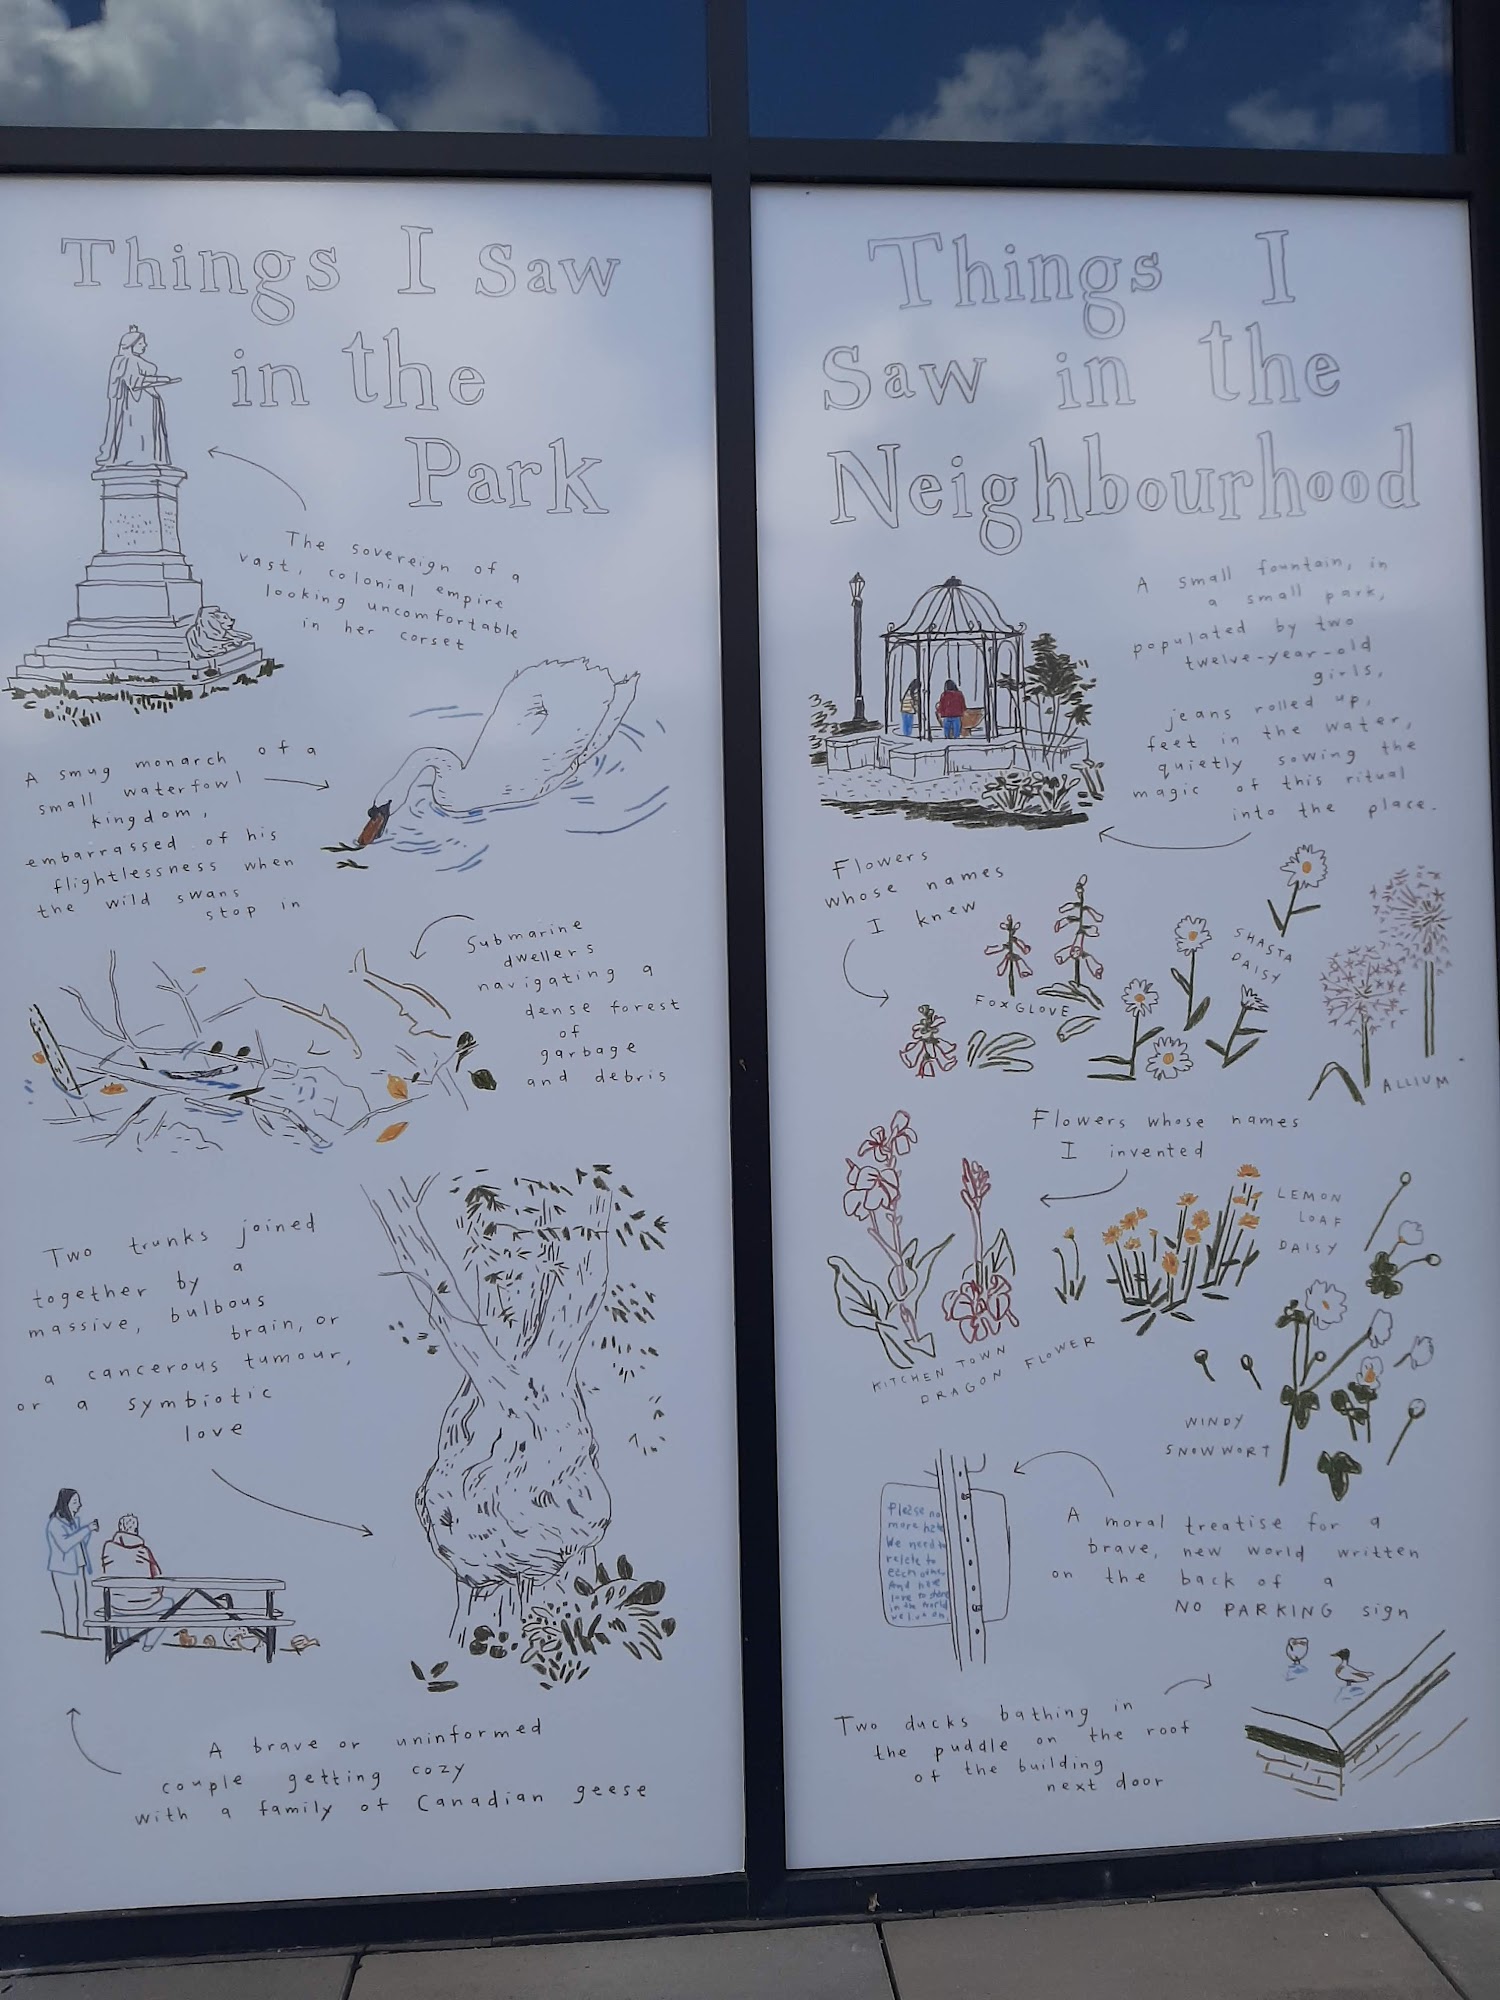 Things I Saw
in the
Park
The sovereign of a
vast, colonial empire
looking uncomfortable
in her corset
A smug monarch of a
small waterfowl
kingdom,
embarrassed of his
flightlessness when
the wild swans
stop in
Submarine
dwellers
navigating a
dense forest
of
garbage
and debris
Two trunks joined
together by a
massive, bulbous
brain, or
a cancerous tumour,
or a symbiotic
love
A brave or uninformed
couple getting cozy
with a family of Canadian geese
Things I
Saw in the
Neighbourhood
A small fountain, in
a small park,
populated by two
twelve-year-old
girls,
jeans rolled up,
feet in the water,
quietly sowing the
magic of this ritual
into the place.
Flowers
whose names
I knew
FOXGLOVE
SHASTA
DAISY
ALLIUM
Flowers whose names
I invented
LEMON
LOAF
DAISY
KITCHEN TOWN
DRAGON FLOWER
WINDY
SNOWWORT
Please no
more hate
We need to
relate to
each other
And
love to share
in the world
we live on
A moral treatise for a
brave, new world written
on the back of a
NO PARKING sign
Two ducks bathing in
the puddle on the roof
of the building
next door